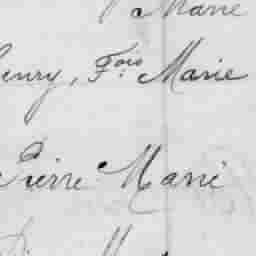 a Marie
Henry, Fois Marie
Pierre Marie